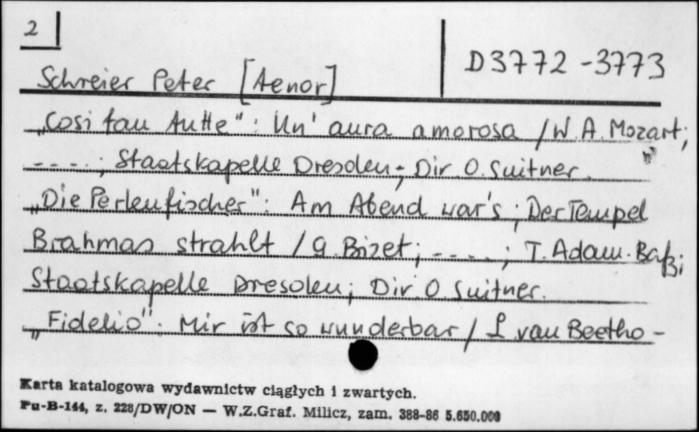 2
D 3772 - 3773
Schreier Peter [tenor]
„Cosi fan tutte": Un' aura amorosa / W. A. Mozart;
- - - -; Staatskapelle Dresden; Dir. O. Suitner.
„Die Perlenfischer": Am Abend war's; Der Tempel
Brahmas strahlt / G. Bizet; - - - -; T. Adam. Baß;
Staatskapelle Dresden; Dir. O. Suitner.
„Fidelio": Mir ist so wunderbar / L. van Beetho-
Karta katalogowa wydawnictw ciągłych i zwartych.
Pu-B-144, z. 228/DW/ON — W.Z.Graf. Milicz, zam. 388-86 5.650.000